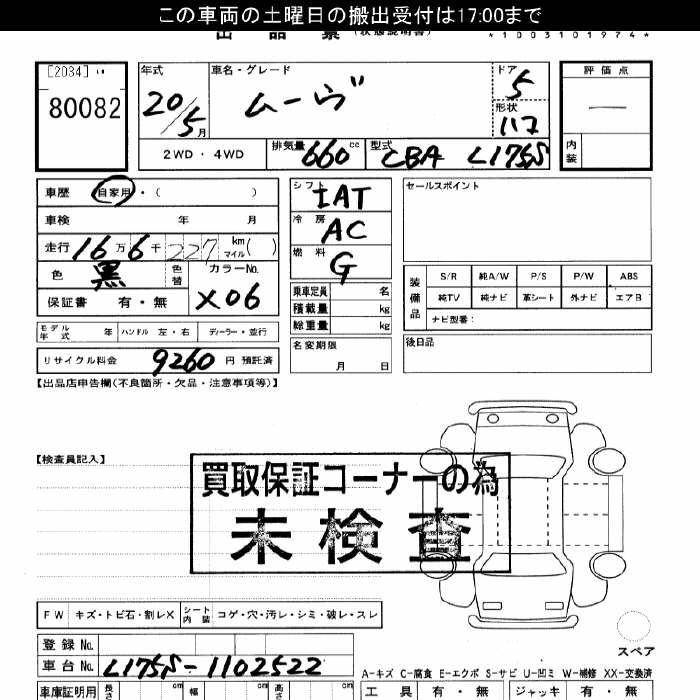 この車両の土曜日の搬出受付は17:00まで
出品票 (状態説明書) *1003101974*
[2034]
80082
年式 20/5月
車名・グレード ムーヴ
ドア 5
形状
評価点 —
内装
2WD・4WD 排気量 660cc 型式 CBA L175S
車歴 自家用・( )
シフト IAT
セールスポイント
車検 年 月
冷房 AC
走行 16万6千227km マイル( )
燃料 G
色 黒 色替 カラーNo. X06
保証書 有・無
乗車定員 名
積載量 kg
総重量 kg
装備品 S/R 純A/W P/S P/W ABS
純TV 純ナビ 革シート 外ナビ エアB
ナビ型番:
モデル年式 年 ハンドル 左・右 ディーラー・並行
名変期限 月 日
後日品
リサイクル料金 9260 円 預託済
【出品店申告欄(不良箇所・欠品・注意事項等)】
【検査員記入】
買取保証コーナーの為
未検査
FW キズ・トビ石・割レX シート内装 コゲ・穴・汚レ・シミ・破レ・スレ
スペア
登録No.
車台No. L175S-1102522
A-キズ C-腐食 E-エクボ S-サビ U-凹ミ W-補修 XX-交換済
車庫証明用 長さ cm 幅 cm 高さ cm
工具 有・無 ジャッキ 有・無